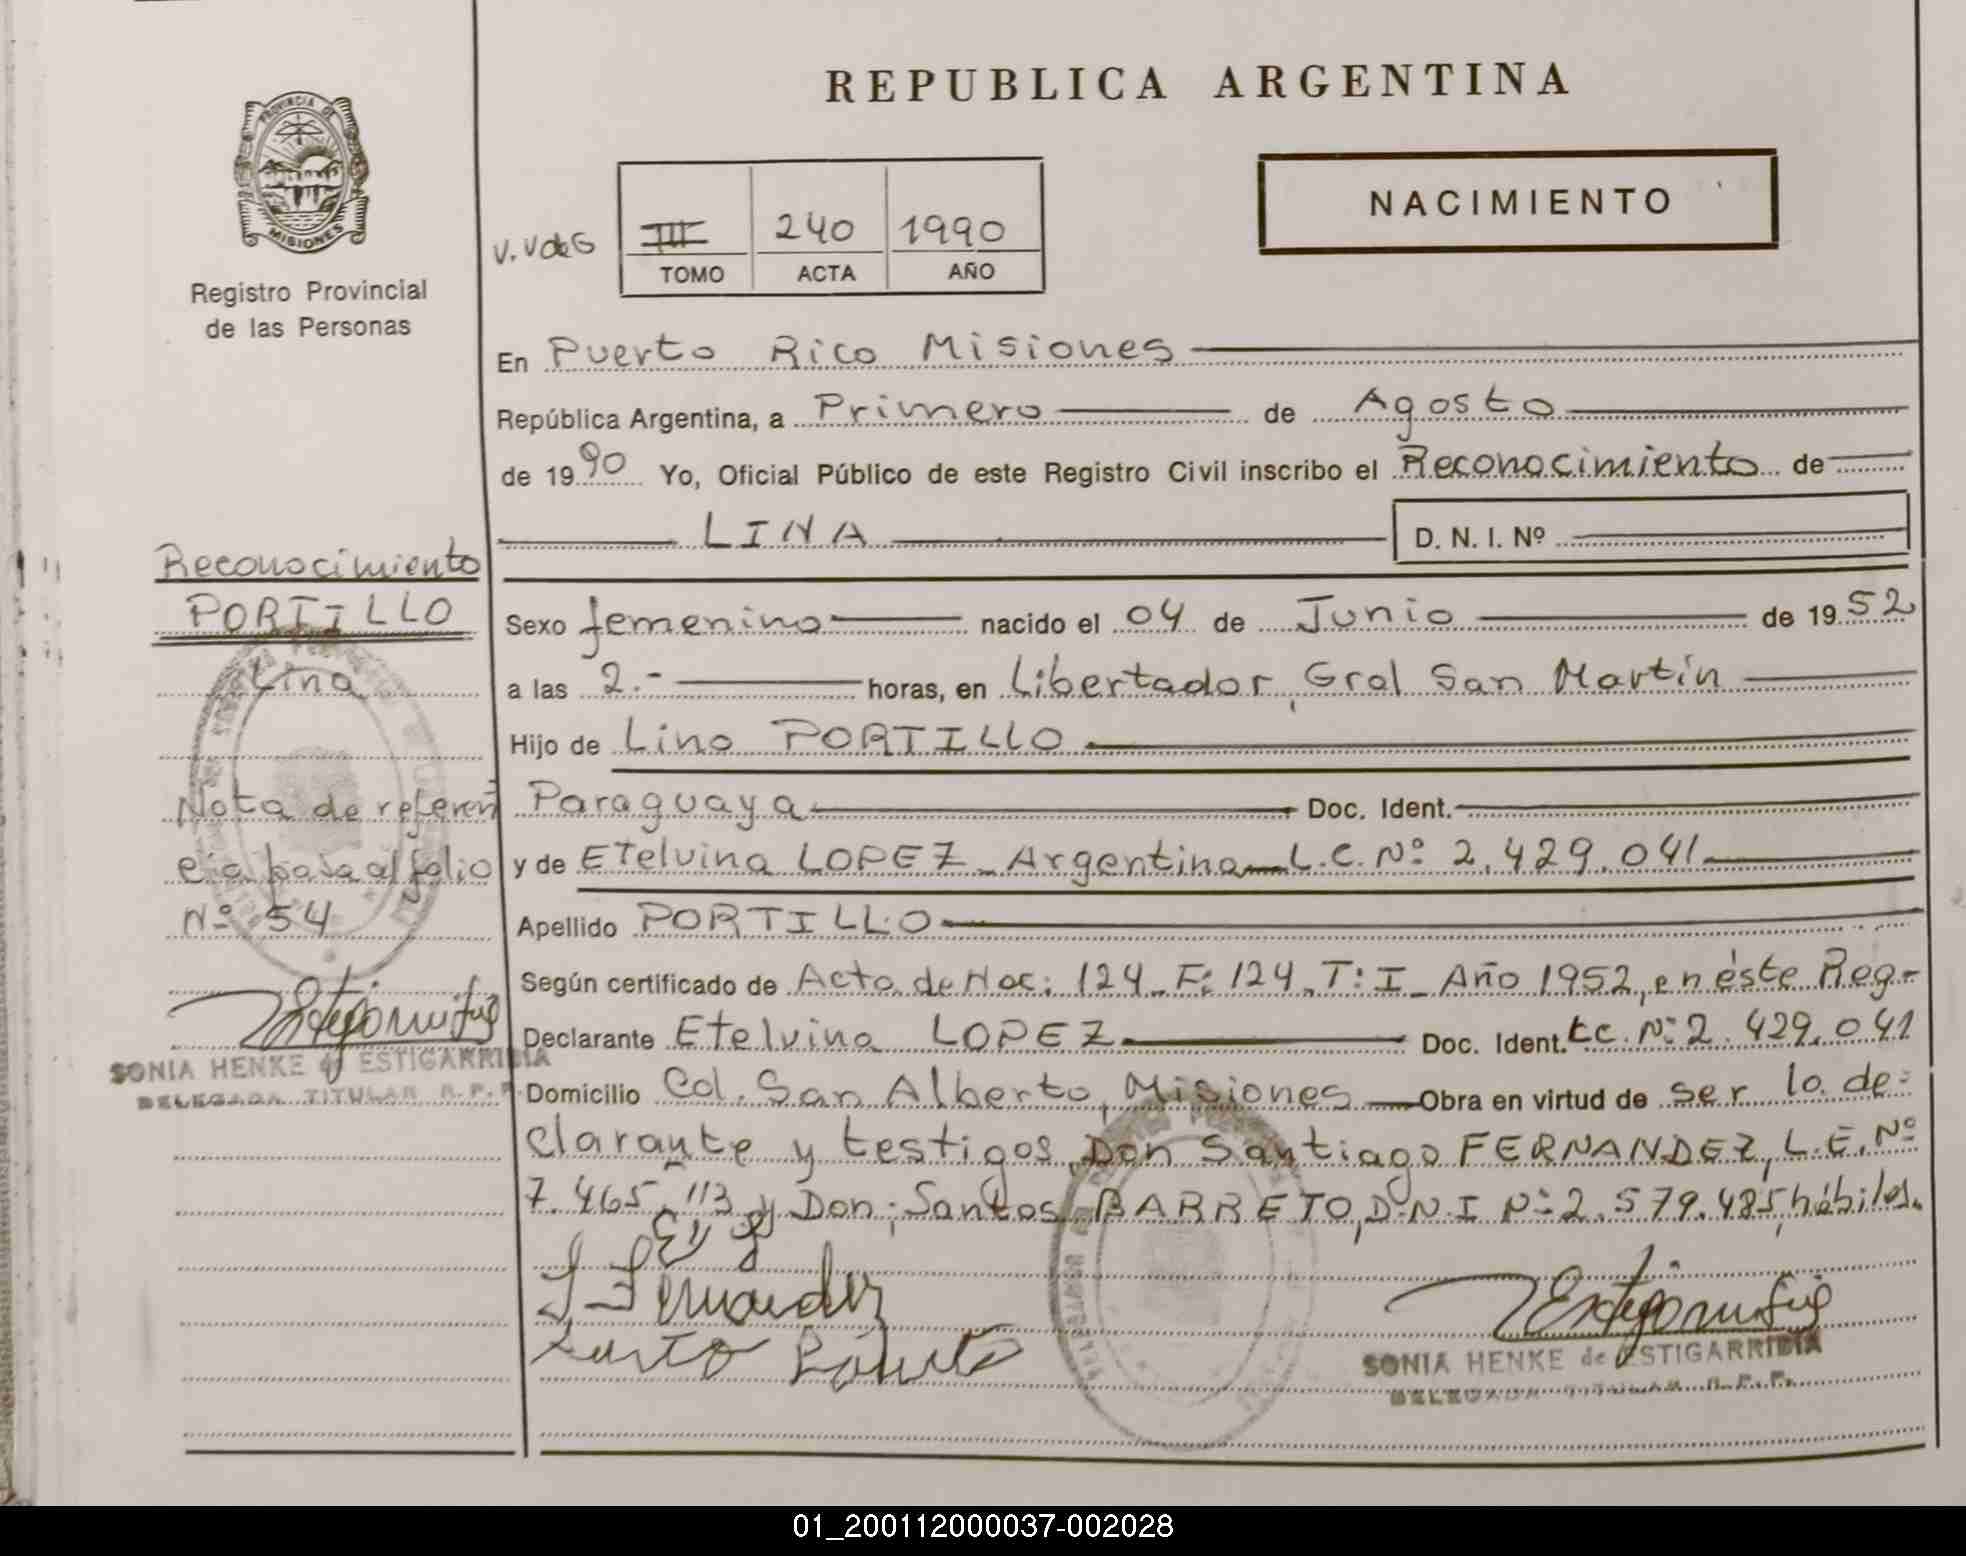 PROVINCIA DE
MISIONES
Registro Provincial
de las Personas
REPUBLICA ARGENTINA
NACIMIENTO
V. V de G
III 240 1990
TOMO ACTA AÑO
En Puerto Rico Misiones
República Argentina, a Primero de Agosto
de 1990 Yo, Oficial Público de este Registro Civil inscribo el Reconocimiento de
LINA D. N. I. Nº
Reconocimiento
PORTILLO
Lina
Nota de referen
cia pasa al folio
Nº 54
SONIA HENKE de ESTIGARRIBIA
DELEGADA TITULAR R. P. P.
Sexo femenino nacido el 04 de Junio de 1952
a las 2.- horas, en Libertador, Gral San Martín
Hijo de Lino PORTILLO
Paraguaya Doc. Ident.
y de Etelvina LOPEZ - Argentina L.C. Nº 2.429.041
Apellido PORTILLO
Según certificado de Acta de Nac: 124 - F: 124 - T: I - Año 1952, en éste Reg.-
Declarante Etelvina LOPEZ Doc. Ident. L.C. Nº 2.429.041
Domicilio Col. San Alberto, Misiones Obra en virtud de ser la de-
clarante y testigos, Don Santiago FERNANDEZ, L.E. Nº
7.465.113 y Don: Santos BARRETO, D.N.I Nº 2.579.485, hábiles.
E L
S. Fernandez
SONIA HENKE de ESTIGARRIBIA
DELEGADA TITULAR R. P. P.
01_200112000037-002028